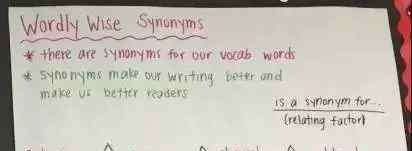 Wordly Wise Synonyms
* there are synonyms for our vocab words
* synonyms make our writing better and
make us better readers
is a synonym for...
(relating factor)